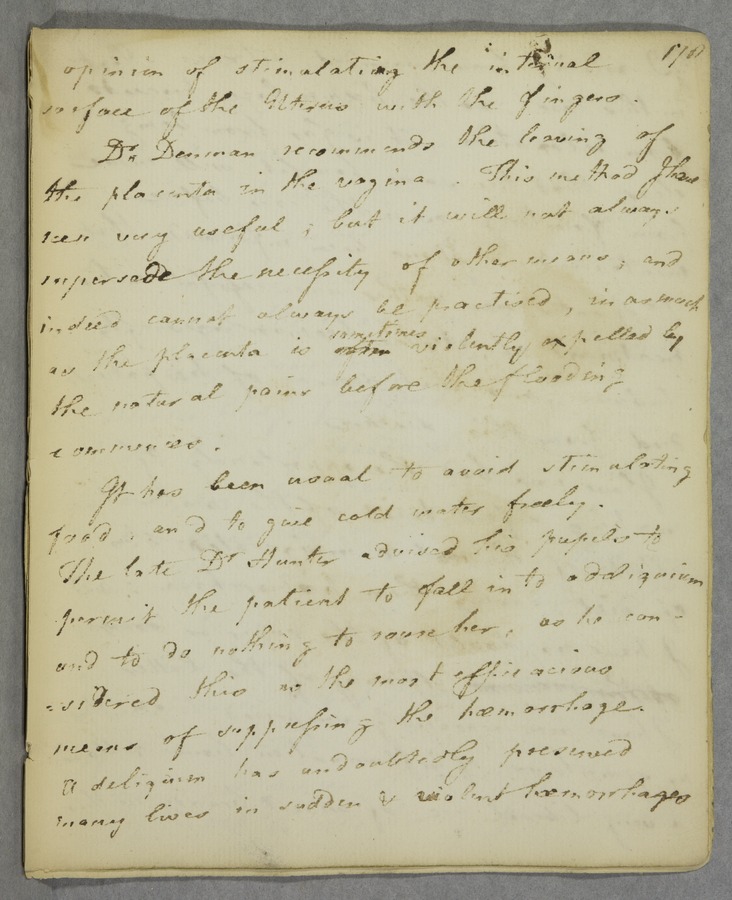 opinion of stimulating the internal
surface of the Uterus with the fingers.
Dr. Denman recommends the leaving of
the placenta in the vagina. This method I have
seen very useful; but it will not always
supersede the necessity of other means; and
indeed cannot always be practised, in as much
sometimes
as the placenta is often violently expelled by
the natural pains before the flooding
commences.
It has been usual to avoid stimulating
food, and to give cold water freely.
The late Dr Hunter advised his pupils to
permit the patient to fall into a deliquium
and to do nothing to rouse her, as he con-
-sidered this as the most efficacious
means of suppressing the hæmorrhage.
A deliquium has undoubtedly preserved
many lives in sudden & violent hæmorrhages